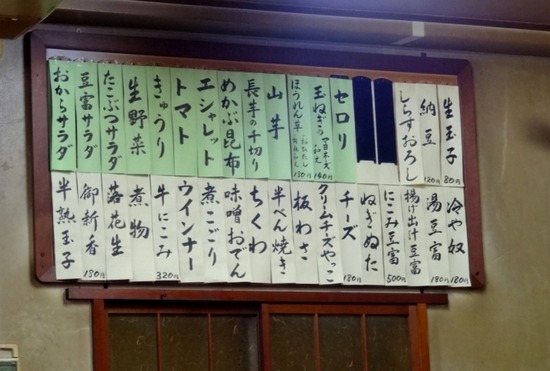 生玉子 80円
納豆 120円
しらすおろし
セロリ
玉ねぎの マヨネーズ和え 140円
ほうれん草 130円
山芋
長芋の千切り
めかぶ昆布
エシャレット
トマト
きゅうり
生野菜
たこぶつサラダ
豆富サラダ
おからサラダ
冷や奴 180円
湯豆富 180円
揚げ出汁豆富
にこみ豆富 500円
ねぎぬた
チーズ 180円
クリームチーズやっこ
板わさ
半ぺん焼き
ちくわ
味噌おでん
煮こごり
ウインナー
牛にこみ 320円
煮物
落花生
御新香 180円
半熟玉子